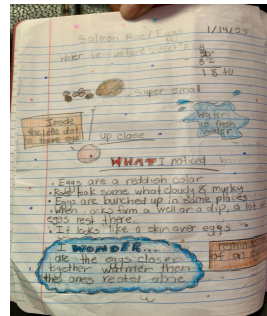 Salmon Roe/Eggs 1/14/25
water temperature
super small
Inside
the little dot
is there eye!
Water
is fresh
water
up close
WHAT I noticed
• Eggs are a reddish color
• look some what cloudy & murky
• Eggs are bunched up in some places
• When rocks form a well or a dip, a lot of
eggs rest there..
• It looks like a skin over eggs
I WONDER...
are the eggs closer
together warmer then
the ones rested alone
of an